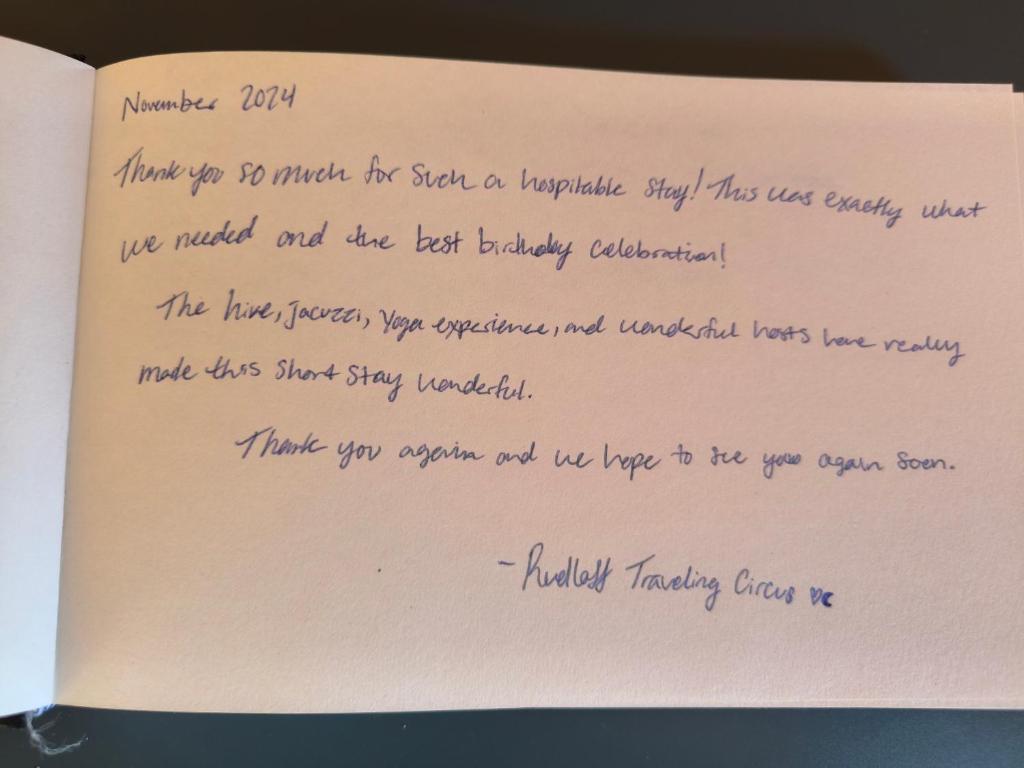 November 2024
Thank you so much for such a hospitable stay! This was exactly what
we needed and the best birthday celebration!
The hive, jacuzzi, yoga experience, and wonderful hosts have really
made this short stay wonderful.
Thank you again and we hope to see you again soon.
- Rudloff Traveling Circus ♥